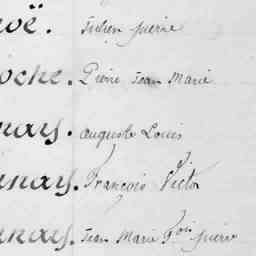 oë. Julien pierre
oche. Pierre Jean Marie
nay. auguste Louis
unay. François Victor
unay. Jean Marie Fois pierre